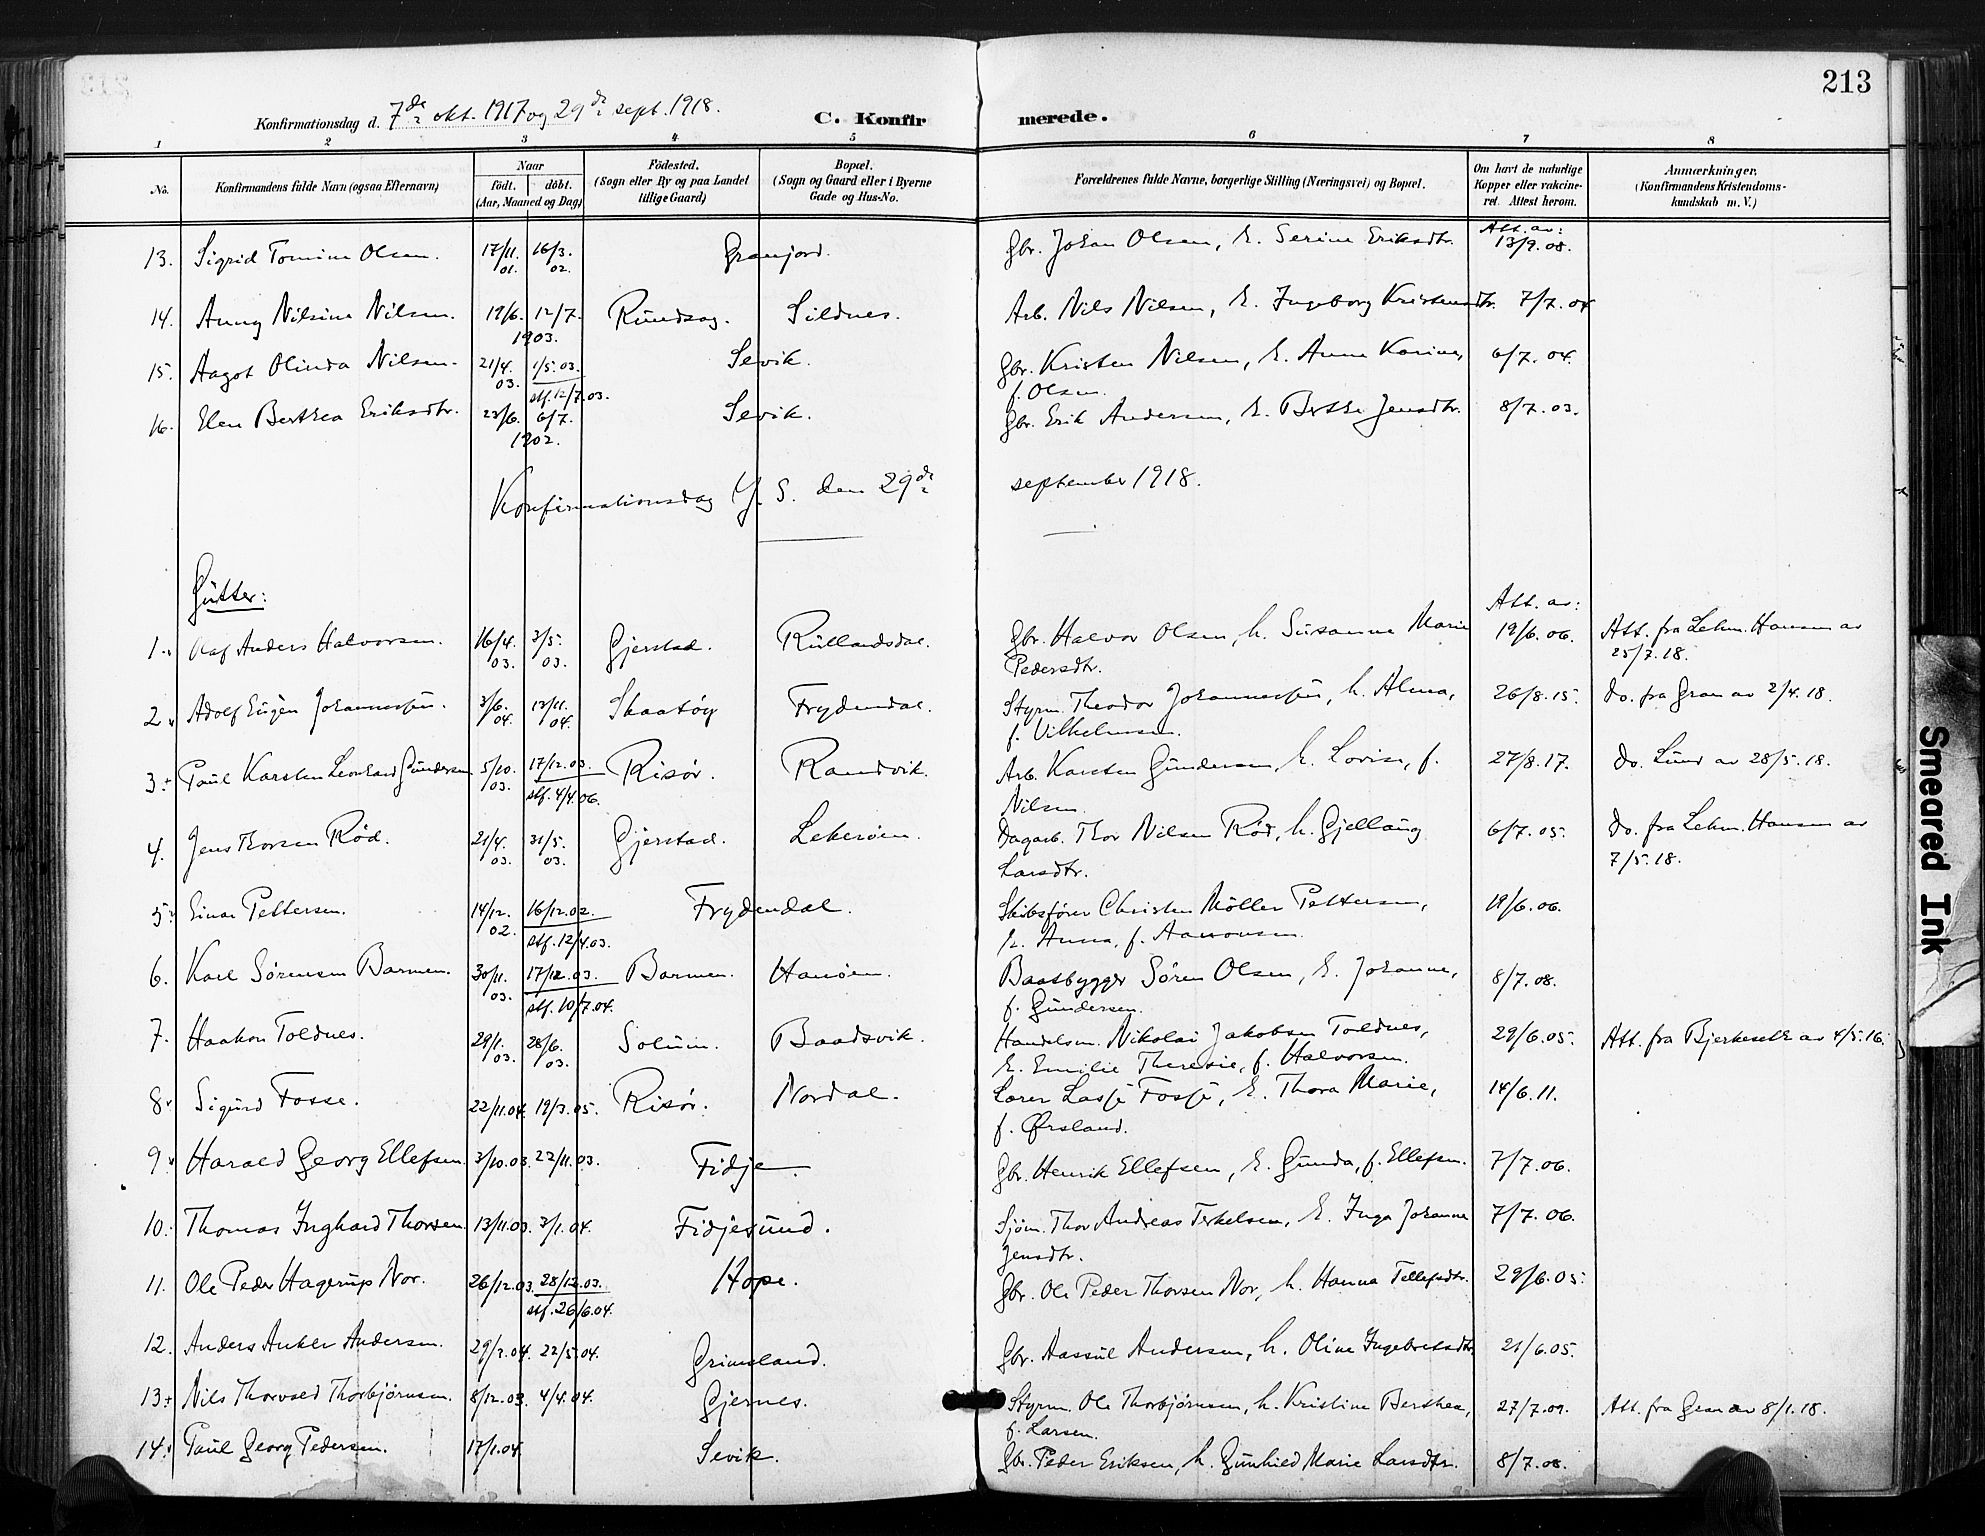 213
Konfirmationsdag d. 7de okt. 1917 og 29de sept. 1918.
C. Konfirmerede.
1 2 3 4 5 6 7 8
No. Konfirmandens fulde Navn (ogsaa Efternavn) Naar födt. döbt. (Aar, Maaned og Dag) Födested. (Sogn eller By og paa Landet tillige Gaard) Bopæl. (Sogn og Gaard eller i Byerne Gade og Hus-No. Forældrenes fulde Navne, borgerlige Stilling (Næringsvei) og Bopæl. Om havt de naturlige Kopper eller vakcineret. Attest herom. Anmærkninger, (Konfirmandens Kristendomskundskab m. V.)
13. Sigrid Tomine Olsen. 17/11. 01. 16/3. 02. Granjord. Gbr. Johan Olsen, h. Serine Eriksdtr. Att. av: 13/9.08.
14. Anny Nilsine Nilsen. 19/6. 12/7. 1903. Rundsag. Sildnes. Arb. Nils Nilsen, h. Ingeborg Kristensdtr. 7/7.04
15. Aagot Olinda Nilsen. 21/4. 03. 1/5.03. stf. 12/7.03. Sevik. Gbr. Kristen Nilsen, h. Anne Karine, f. Olsen. 6/7.04.
16. Elen Berthea Eriksdtr. 23/6. 6/7. 1902. Sevik. Gbr. Erik Andersen, h. Berthe Jensdtr. 8/7.03.
Konfirmationsdag Y. S. den 29de september 1918.
Gutter:
Att. av:
1. Olaf Anders Halvorsen. 16/4. 03. 3/5. 03. Gjerstad. Rullandsdal. Gbr. Halvor Olsen, h. Susanne Marie Pedersdtr. 19/6.06. Att. fra Lehm. Hansen av 25/7.18.
2. Adolf Eugen Johannessen. 3/6. 04. 13/11. 04. Skaatøy Frydendal. Styrm. Theodor Johannessen, h. Alma, f. Vilhelmsen. 26/8.15. do. fra Gran av 2/4.18.
3. Paul Karsten Leonhard Gundersen 5/10. 03. 17/12.03. stf. 4/4.06. Risør. Randvik. Arb. Karsten Gundersen, h. Lovise, f. Nilsen 27/8.17. do. Lund av 28/5.18.
4. Jens Thorsen Rød. 21/4. 03. 31/5. 03. Gjerstad. Lekerøen. Dagarb. Thor Nilsen Rød, h. Gjellaug Larsdtr. 6/7.05. do. fra Lehm. Hansen av 7/5.18.
5. Einar Pettersen. 14/12. 02. 16/12.02. stf. 12/4.03. Frydendal. Skibsfører Christen Møller Pettersen, h. Anna, f. Aanonsen. 19/6.06.
6. Karl Sørensen Barmen. 30/11. 03. 17/12.03. stf. 10/7.04. Barmen. Hanøen. Baatbygger Søren Olsen, h. Johanne, f. Gundersen. 8/7.08.
7. Haakon Toldnes. 29/1. 03. 28/6. 03. Solum. Baadsvik. Handelsm. Nikolai Jakobsen Toldnes, h. Emilie Theresie, f. Halvorsen. 29/6.05. Att. fra Bjerkeseth av 4/5.16.
8. Sigurd Fosse. 22/11.04. 19/3.05. Risør. Nordal. Lærer Lasse Fosse, h. Thora Marie, f. Ørsland. 14/6.11.
9. Harald Georg Ellefsen. 3/10.03. 22/11.03. Fidje. Gbr. Henrik Ellefsen, h. Gunda, f. Ellefsen. 7/7.06.
10. Thomas Inghard Thorsen. 13/11.03. 3/1.04. Fidjesund. Sjøm. Thor Andreas Terkelsen, h. Inga Johanne Jensdtr. 7/7.06.
11. Ole Peder Hagerup Nor. 26/12.03. 28/12.03. stf. 26/6.04. Hope. Gbr. Ole Peder Thorsen Nor, h. Hanna Tellefsdtr. 29/6.05.
12. Anders Anker Andersen. 29/2.04. 22/5.04. Grimsland. Gbr. Aassul Andersen, h. Oline Ingebretsdtr. 21/6.05.
13. Nils Thorvald Thorbjørnsen. 8/12.03. 4/4.04. Gjernes. Styrm. Ole Thorbjørnsen, h. Kristine Berthea, f. Larsen. 27/7.09. Att. fra Gran av 8/1.18.
14. Paul Georg Pedersen. 17/1.04. Sevik. Gbr. Peder Eriksen, h. Gunhild Marie Larsdtr. 8/7.08.
Smeared Ink